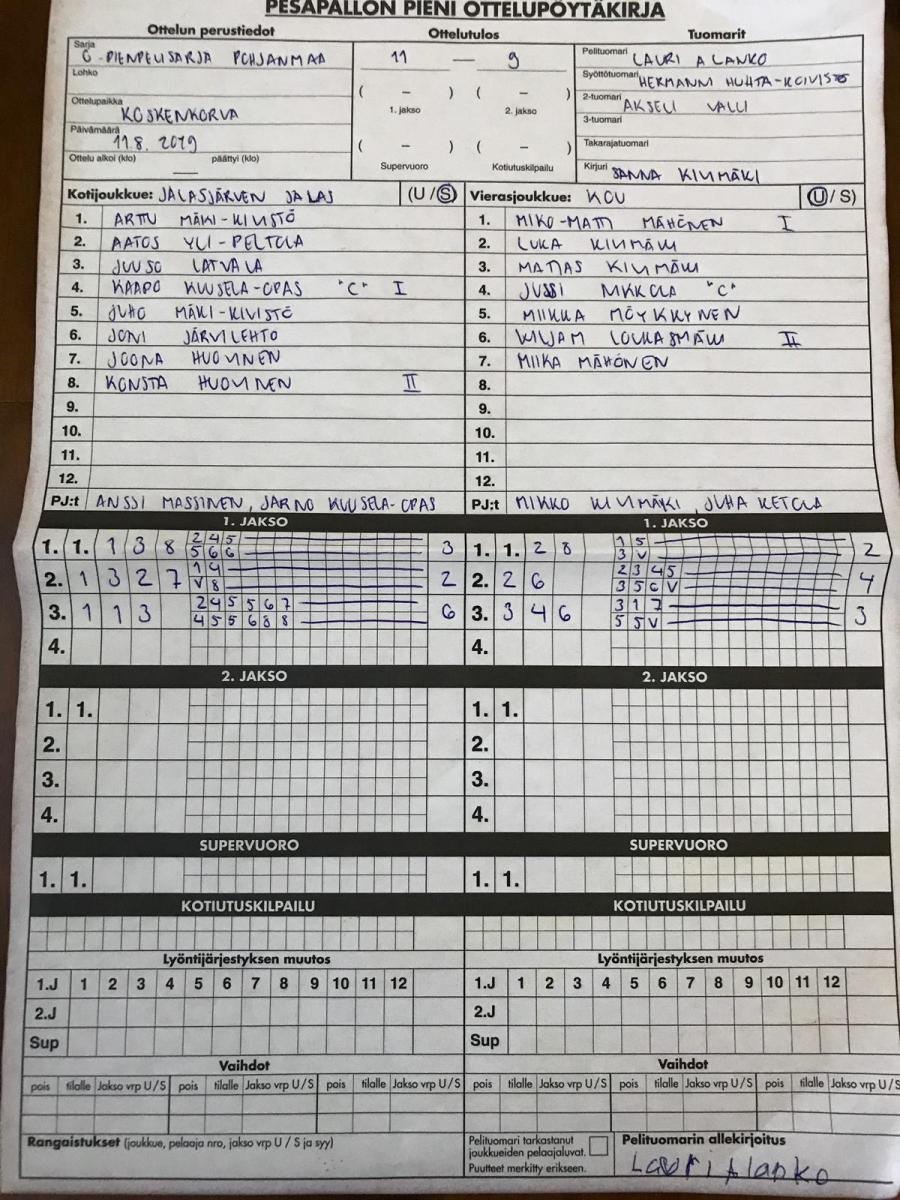 PESÄPALLON PIENI OTTELUPÖYTÄKIRJA
Ottelun perustiedot
Ottelutulos
Tuomarit
Sarja
C-PIENPELISARJA POHJANMAA
Lohko
Ottelupaikka
KOSKENKORVA
Päivämäärä
11.8. 2019
Ottelu alkoi (klo) päättyi (klo)
11 — 9
( – ) ( – )
1. jakso 2. jakso
( – ) ( – )
Supervuoro Kotiutuskilpailu
Pelituomari
LAURI ALANKO
Syöttötuomari HERMANNI HUHTA-KOIVISTO
2-tuomari AKSELI VALLI
3-tuomari
Takarajatuomari
Kirjuri SANNA KIVIMÄKI
Kotijoukkue: JALASJÄRVEN JALAS (U/S)
1. ARTTU MÄKI-KIVISTÖ
2. AATOS YLI-PELTOLA
3. JUUSO LATVALA
4. KAAPO KUUSELA-OPAS "C" I
5. JUHO MÄKI-KIVISTÖ
6. JONI JÄRVILEHTO
7. JOONA HUOVINEN
8. KONSTA HUOVINEN II
9.
10.
11.
12.
PJ:t ANSSI MASSINEN, JARNO KUUSELA-OPAS
Vierasjoukkue: KOU (U/S)
1. MIKO-MATTI MÄHÖNEN I
2. LUKA KIVIMÄKI
3. MATIAS KIVIMÄKI
4. JUSSI MIKKOLA "C"
5. MIIKKA MÖYKKYNEN
6. WILJAM LOUKASMÄKI II
7. MIIKA MÄHÖNEN
8.
9.
10.
11.
12.
PJ:t MIKKO KIVIMÄKI, JUHA KETOLA
1. JAKSO
1. 1. 1 3 8 2 4 5 3
5 6 6
2. 1 3 2 7 1 4 2
V 8
3. 1 1 3 2 4 5 5 6 7 6
4 5 5 6 8 8
4.
1. JAKSO
1. 1. 2 8 1 5 2
3 V
2. 2 6 2 3 4 5 4
3 5 6 V
3. 3 4 6 3 1 7 3
5 5 V
4.
2. JAKSO
1. 1.
2.
3.
4.
2. JAKSO
1. 1.
2.
3.
4.
SUPERVUORO
1. 1.
SUPERVUORO
1. 1.
KOTIUTUSKILPAILU
KOTIUTUSKILPAILU
Lyöntijärjestyksen muutos
1.J 1 2 3 4 5 6 7 8 9 10 11 12
2.J
Sup
Lyöntijärjestyksen muutos
1.J 1 2 3 4 5 6 7 8 9 10 11 12
2.J
Sup
Vaihdot
pois tilalle Jakso vrp U/S pois tilalle Jakso vrp U/S pois tilalle Jakso vrp U/S
Vaihdot
pois tilalle Jakso vrp U/S pois tilalle Jakso vrp U/S pois tilalle Jakso vrp U/S
Rangaistukset (joukkue, pelaaja nro, jakso vrp U / S ja syy)
Pelituomari tarkastanut
joukkueiden pelaajaluvat.
Puutteet merkitty erikseen.
Pelituomarin allekirjoitus
Lauri Alanko